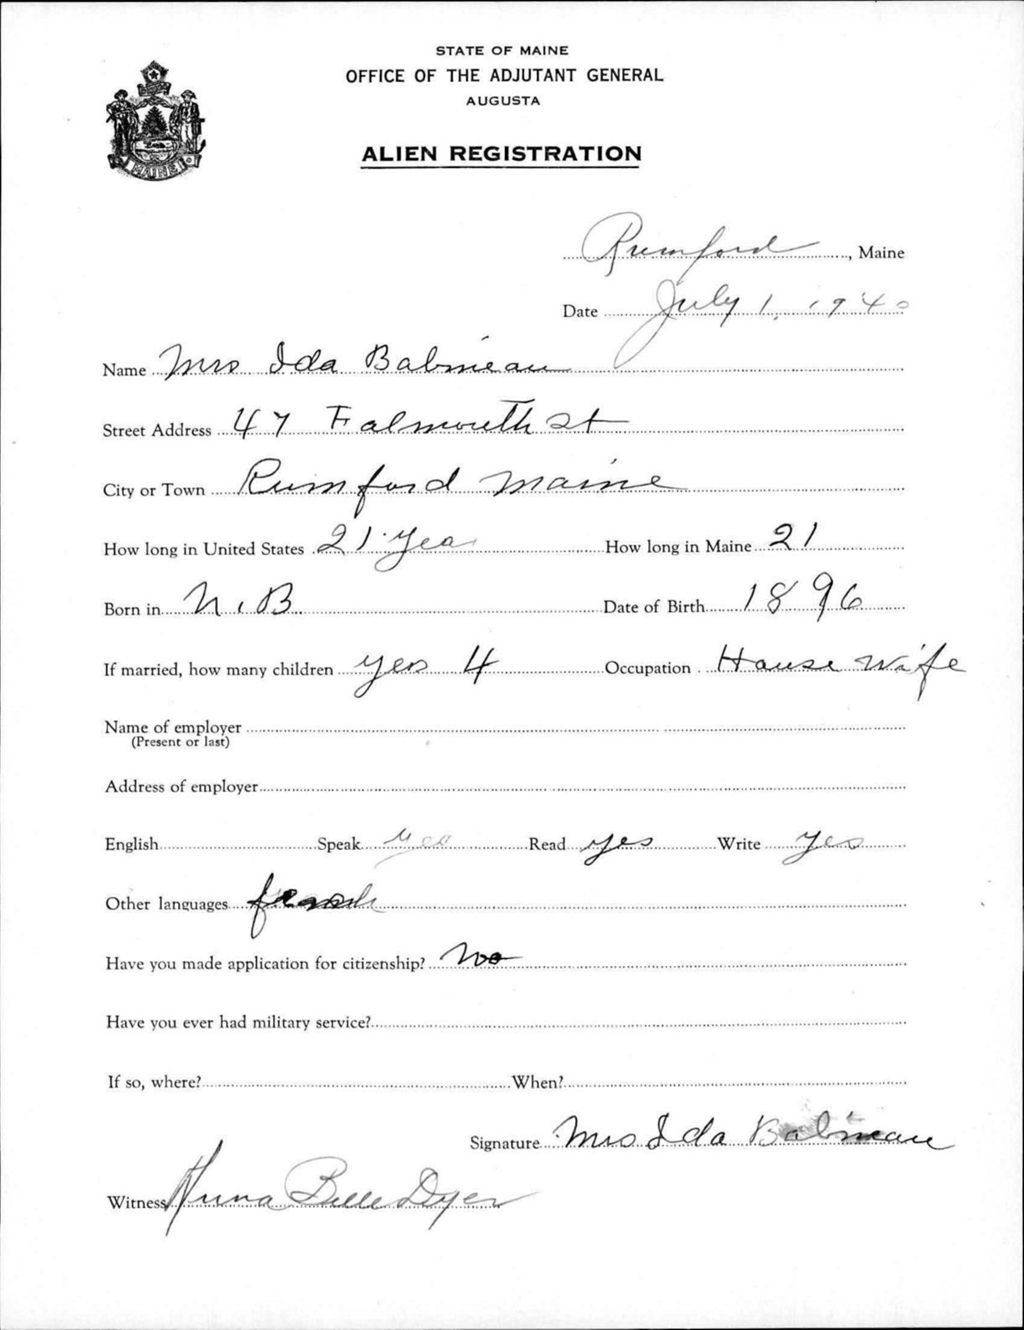 STATE OF MAINE
OFFICE OF THE ADJUTANT GENERAL
AUGUSTA
ALIEN REGISTRATION
MAINE
Rumford, Maine
Date July 1, 1940
Name Mrs Ida Babineau
Street Address 47 Falmouth St
City or Town Rumford Maine
How long in United States 21 Yea How long in Maine 21
Born in N.B. Date of Birth 1896
If married, how many children yes 4 Occupation House wife
Name of employer
(Present or last)
Address of employer
English Speak yes Read yes Write yes
Other languages french
Have you made application for citizenship? No
Have you ever had military service?
If so, where? When?
Signature Mrs Ida Babineau
Witness Anna Belle Dyer